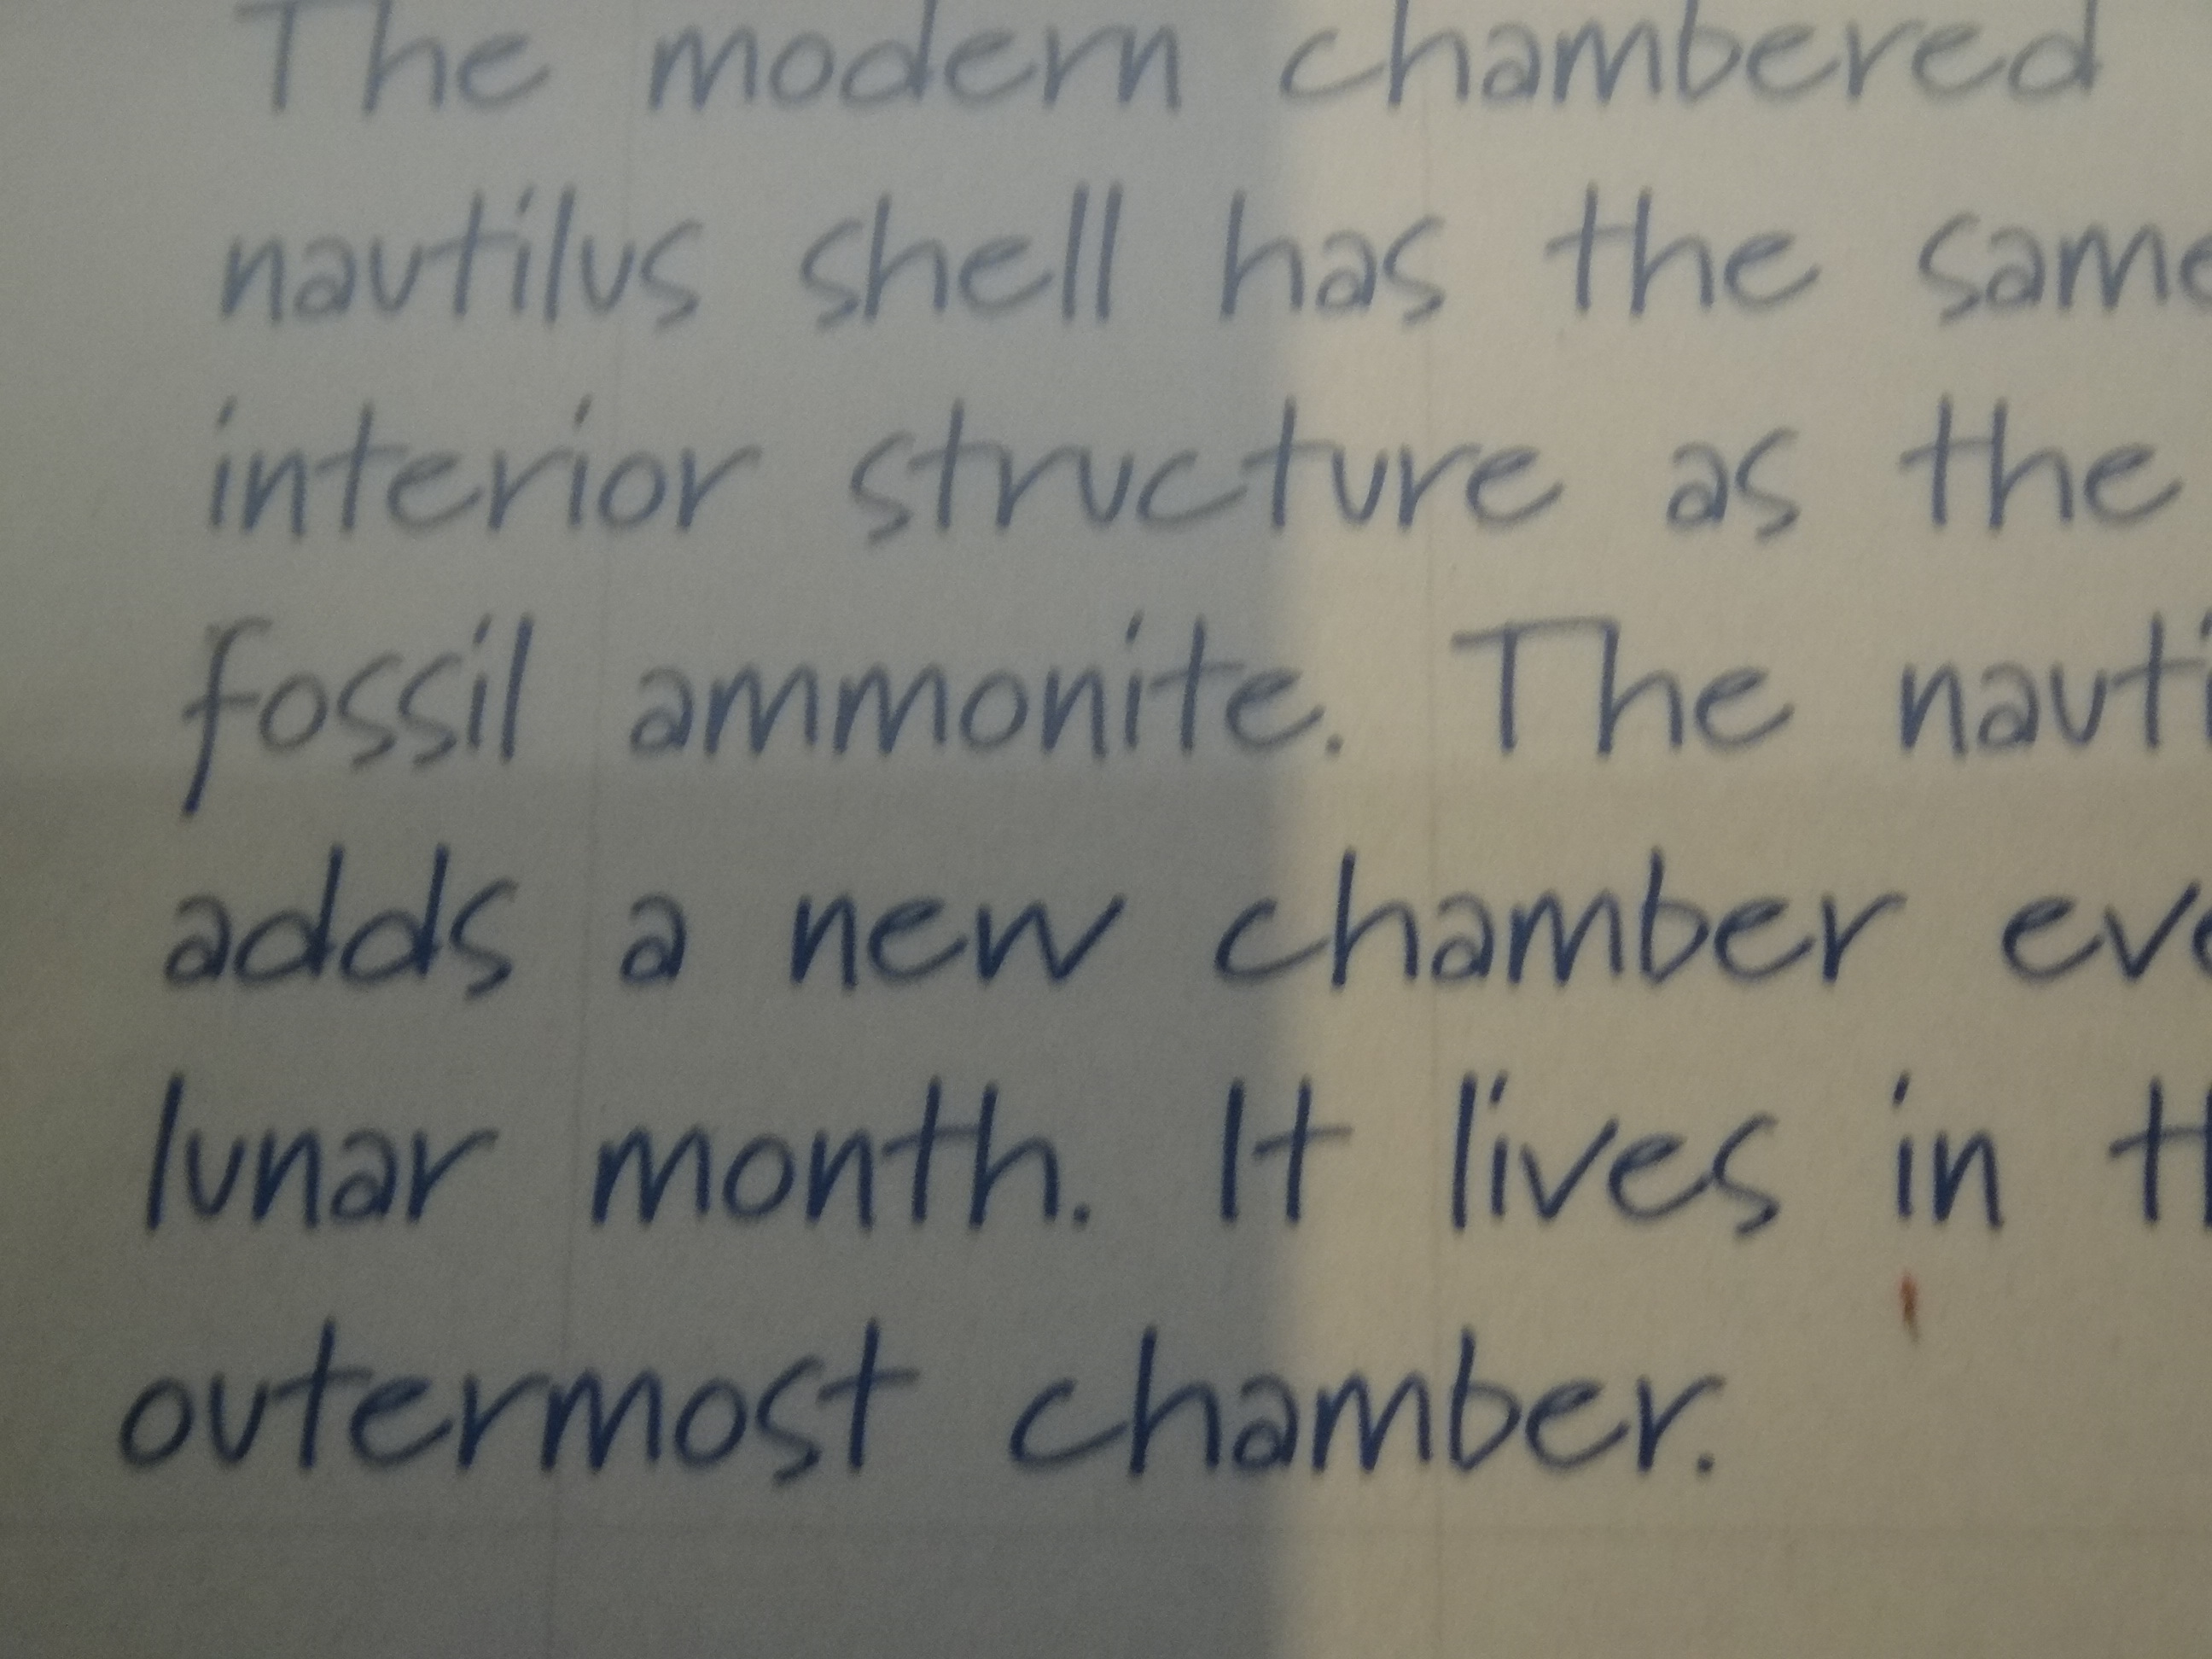 The modern chambered
nautilus shell has the same
interior structure as the
fossil ammonite. The
adds a new chamber
lunar month. It lives in
outermost chamber.